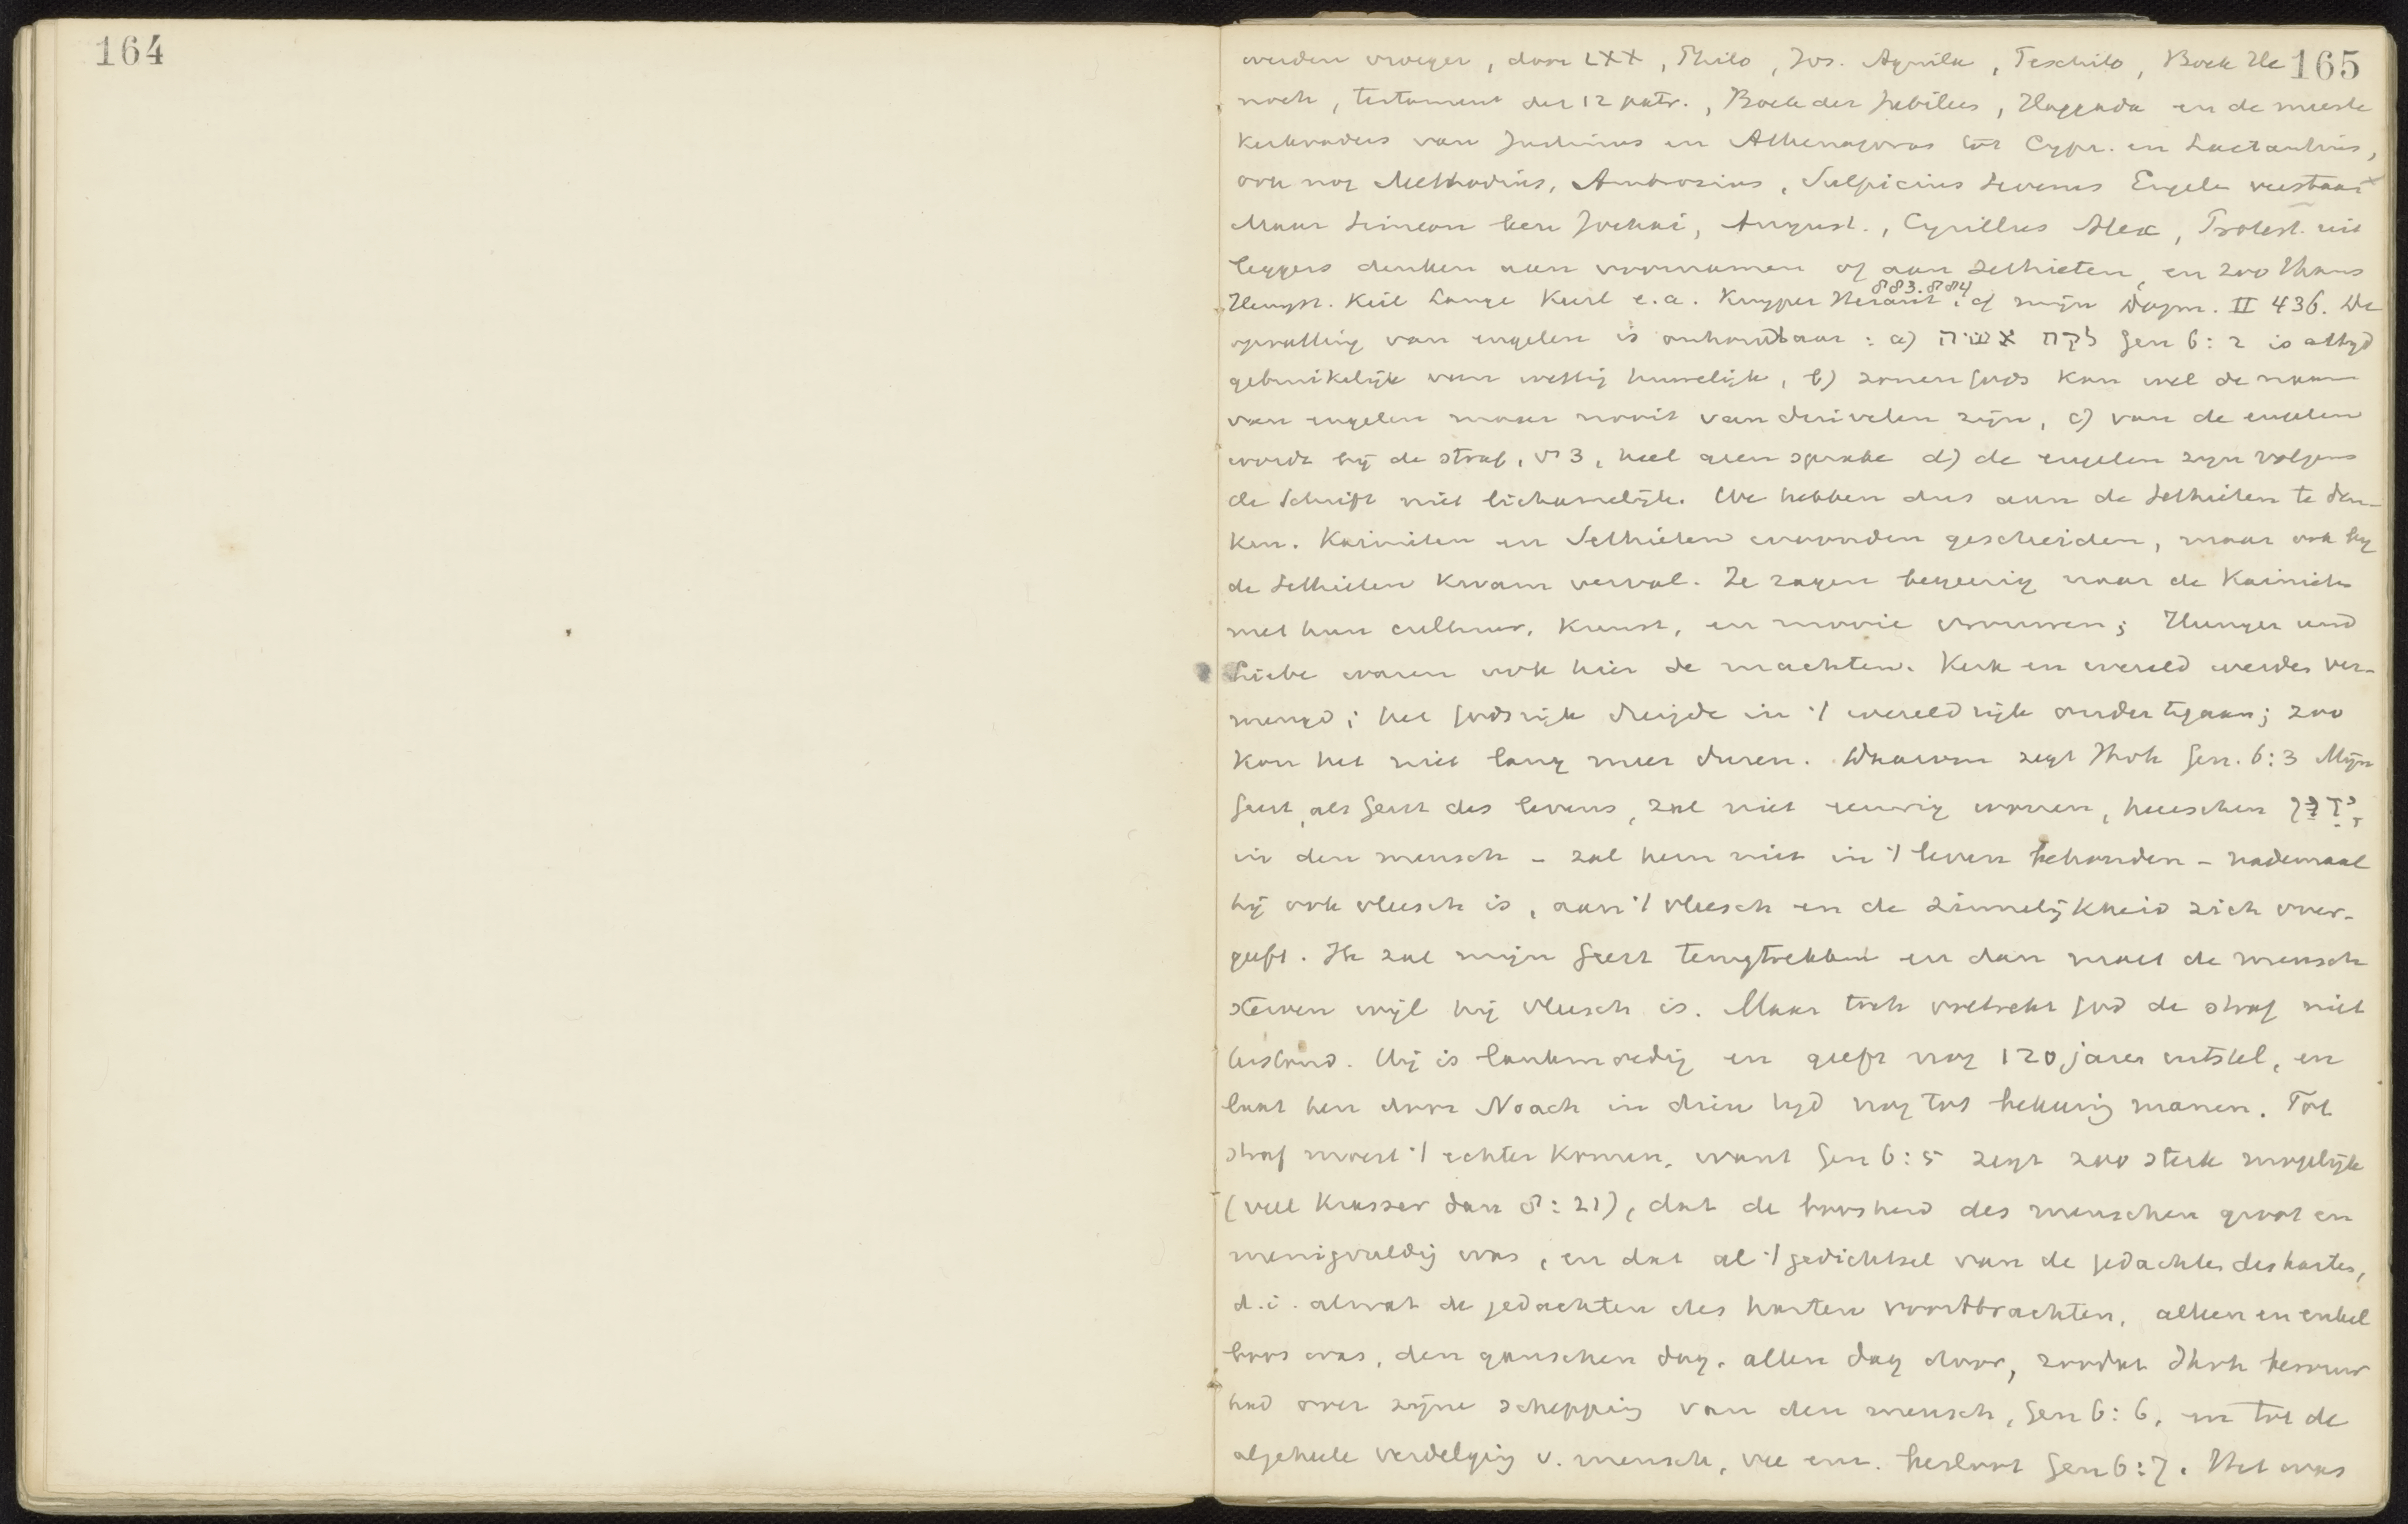 164
165
werden vroeger, door LXX, Philo, Jos. Aquila, Peschito, Boek He
noch, testament der 12 patr., Boek der Jubilees, Haggada en de meeste
kerkvaders van Justinus en Athenagoras tot Cypr. en Lactantius,
ook nog Methodius, Ambrosius, Sulpicius Severus Engelen verstaan
Maar Simeon ben Jochai, August., Cyrillus Alex, Protest. uit
leggers denken aan voornamen of aan Sethieten, en zoo thans
883.884
Hengst. Keil Lange Kurl e.a. Kuyper Heraut. cf mijn Dogm. II 436. De
opvatting van engelen is onhoudbaar: a) לקח אשה Gen 6:2 is altijd
gebruikelijk van wettig huwelijk, b) zonen Gods kan wel de naam
van engelen maar nooit van duivelen zijn, c) van de engelen
wordt bij de straf, vs 3, heel geen sprake d) de engelen zijn volgens
de Schrift niet lichamelijk. We hebben dus aan de Sethieten te den-
ken. Kainiten en Sethieten woonden gescheiden, maar ook bij
de Sethieten kwam verval. Ze zagen begeerig naar de Kainieten
met hun cultuur, kunst, en mooie vrouwen; Hunger und
Liebe waren ook hier de machten. Kerk en wereld werden ver-
mengd; het Godsrijk dreigde in 't wereldrijk onder te gaan; zoo
kon het niet lang meer duren. Daarom zegt Jhvh Gen. 6:3 Mijn
Geest, als Geest des levens, zal niet eeuwig wonen, heerschen יָדִין
in den mensch - zal hem niet in 't leven behouden - nademaal
hij ook vleesch is, aan 't vleesch en de zinnelijkheid zich over-
geeft. Ik zal mijn Geest terugtrekken en dan moet de mensch
sterven wijl hij vleesch is. Maar toch voltrekt God de straf niet
terstond. Hij is lankmoedig en geeft nog 120 jaren uitstel, en
laat hen door Noach in dien tijd nog tot bekeering manen. Tot
straf moest 't echter komen, want Gen 6:5 zegt zoo sterk mogelijk
(veel krasser dan 8:21), dat de boosheid des menschen groot en
menigvuldig was, en dat al 't gedichtsel van de gedachten des harten,
d.i. alwat de gedachten des harten voortbrachten, alleen en enkel
boos was, den ganschen dag, allen dag door, zoodat Jhvh berouw
had over zijne schepping van den mensch, Gen 6:6, en tot de
algeheele verdelging v. mensch, vee enz. besloot Gen 6:7. Het was